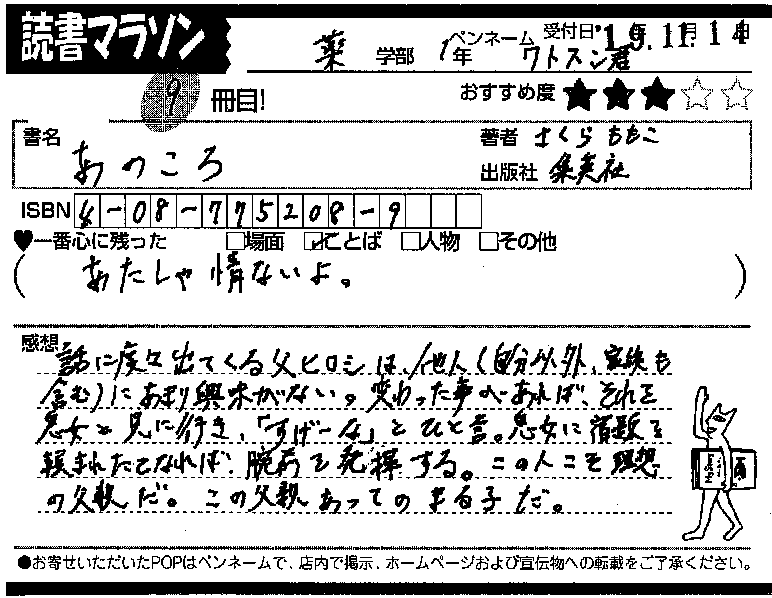 読書マラソン
薬 学部 1年 ペンネーム ワトスン君 受付日 '19.11.14
9 冊目! おすすめ度 ★★★☆☆
書名 あのころ
著者 さくらももこ
出版社 集英社
ISBN 4-08-775208-9
♥一番心に残った □場面 ☑ことば □人物 □その他
( あたしゃ情ないよ。 )
感想
話に度々出てくる父ヒロシは、他人(自分以外、家族も
含む)にあまり興味がない。変わった事があれば、それを
息女と見に行き、「すげーな」とひと言。息女に宿題を
頼まれたとなれば、腕前を発揮する。この人こそ理想
の父親だ。この父親あってのまる子だ。
●お寄せいただいたPOPはペンネームで、店内で掲示、ホームページおよび宣伝物への転載をご了承ください。